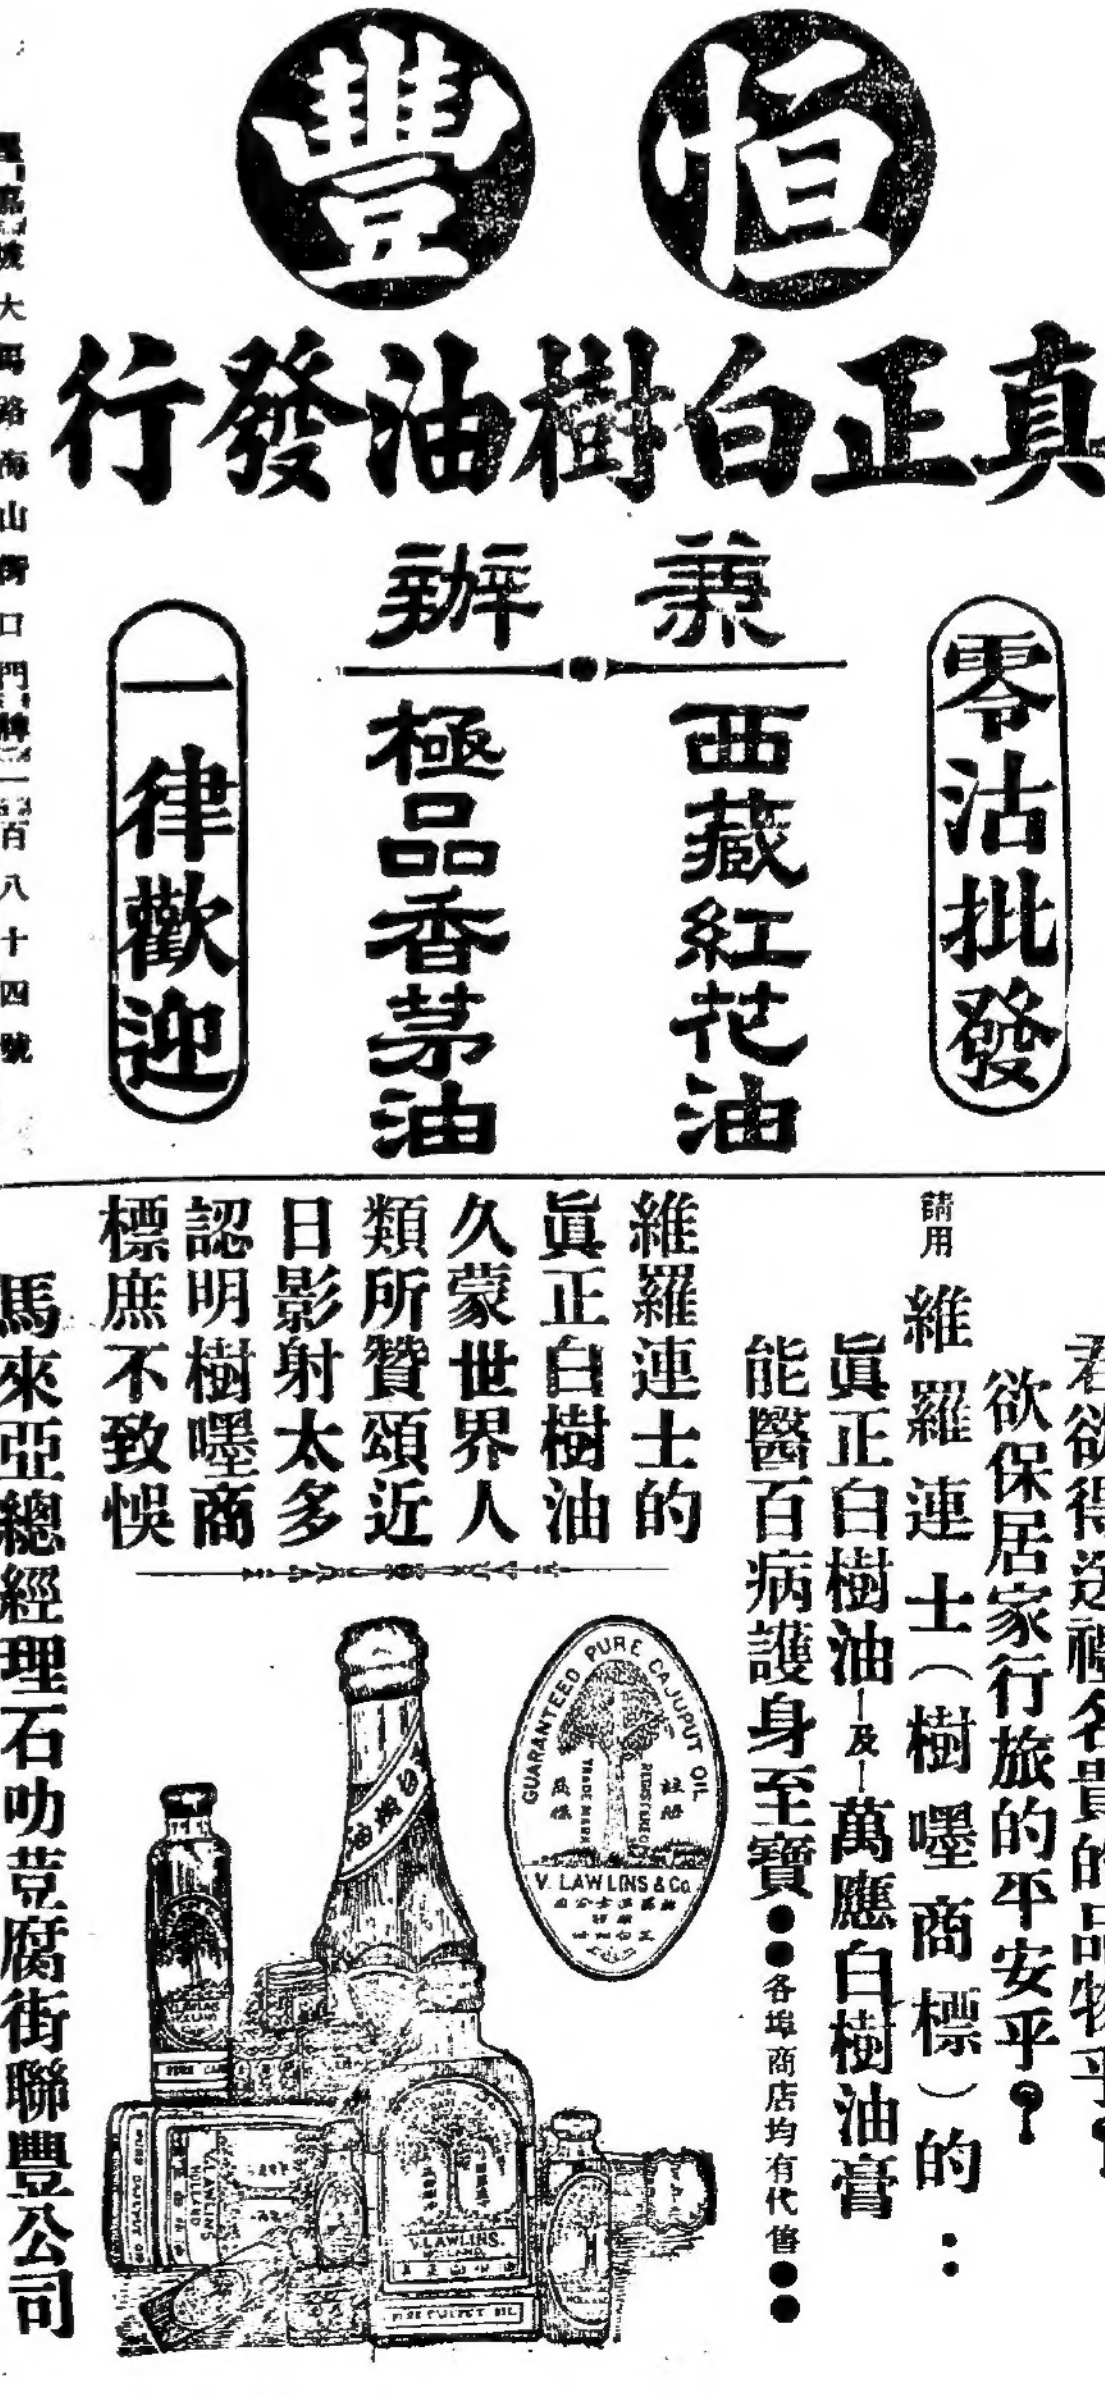 恒豐
真正白樹油發行
零沽批發
兼辦
西藏紅花油
極品香茅油
一律歡迎
大馬路海山街口門牌一百八十四號
君欲得送禮名貴的品物乎？
欲保居家行旅的平安乎？
請用 維羅連士（樹嘜商標）的：
眞正白樹油—及—萬應白樹油膏
能醫百病護身至寶●●各埠商店均有代售●●
維羅連士的
眞正白樹油
久蒙世界人
類所贊頌近
日影射太多
認明樹嘜商
標庶不致悞
GUARANTEED PURE CAJUPUT OIL
TRADE MARK
REGISTERED
註册
V. LAWLINS & Co.
白樹油
V. LAWLINS
HOLLAND
V. LAWLINS.
HOLLAND
PURE CAJUPUT OIL
馬來亞總經理石叻荳腐街聯豐公司